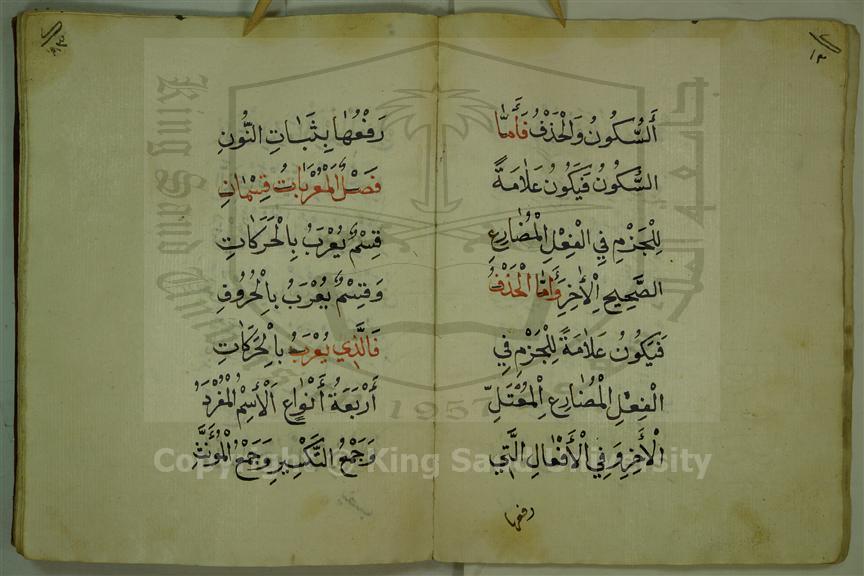 أَلسُّكُونُ وَالْحَذْفُ فَأَمَّا
السُّكُونُ فَيَكُونُ عَلَامَةً
لِلْجَزْمِ فِي الْفِعْلِ الْمُضَارِعِ
الصَّحِيحِ الْأٰخِرِ وَأَمَّا الْحَذْفُ
فَيَكُونُ عَلَامَةً لِلْجَزْمِ فِي
الْفِعْلِ الْمُضَارِعِ الْمُعْتَلِّ
الْأٰخِرِ وَفِي الْأَفْعَالِ الَّتِي
رفعها
رَفْعُهَا بِثَبَاتِ النُّونِ
فَصْلٌ الْمُعْرَبَاتُ قِسْمَانِ
قِسْمٌ يُعْرَبُ بِالْحَرَكَاتِ
وَقِسْمٌ يُعْرَبُ بِالْحُرُوفِ
فَالَّذِي يُعْرَبُ بِالْحَرَكَاتِ
أَرْبَعَةُ أَنْوَاعٍ اَلْأِسْمُ الْمُفْرَدُ
وَجَمْعُ التَّكْسِيرِ وَجَمْعُ الْمُؤَنَّثِ
King Saud
جامعة الملك
1957
Copyright © King Saud University